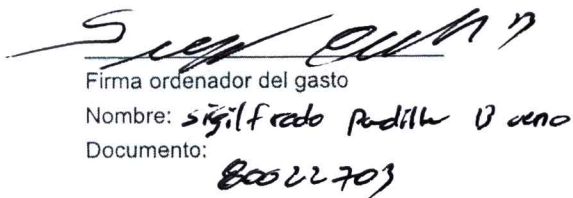 Firma ordenador del gasto
Nombre: sigilfredo Padilla Bueno
Documento:
80022703